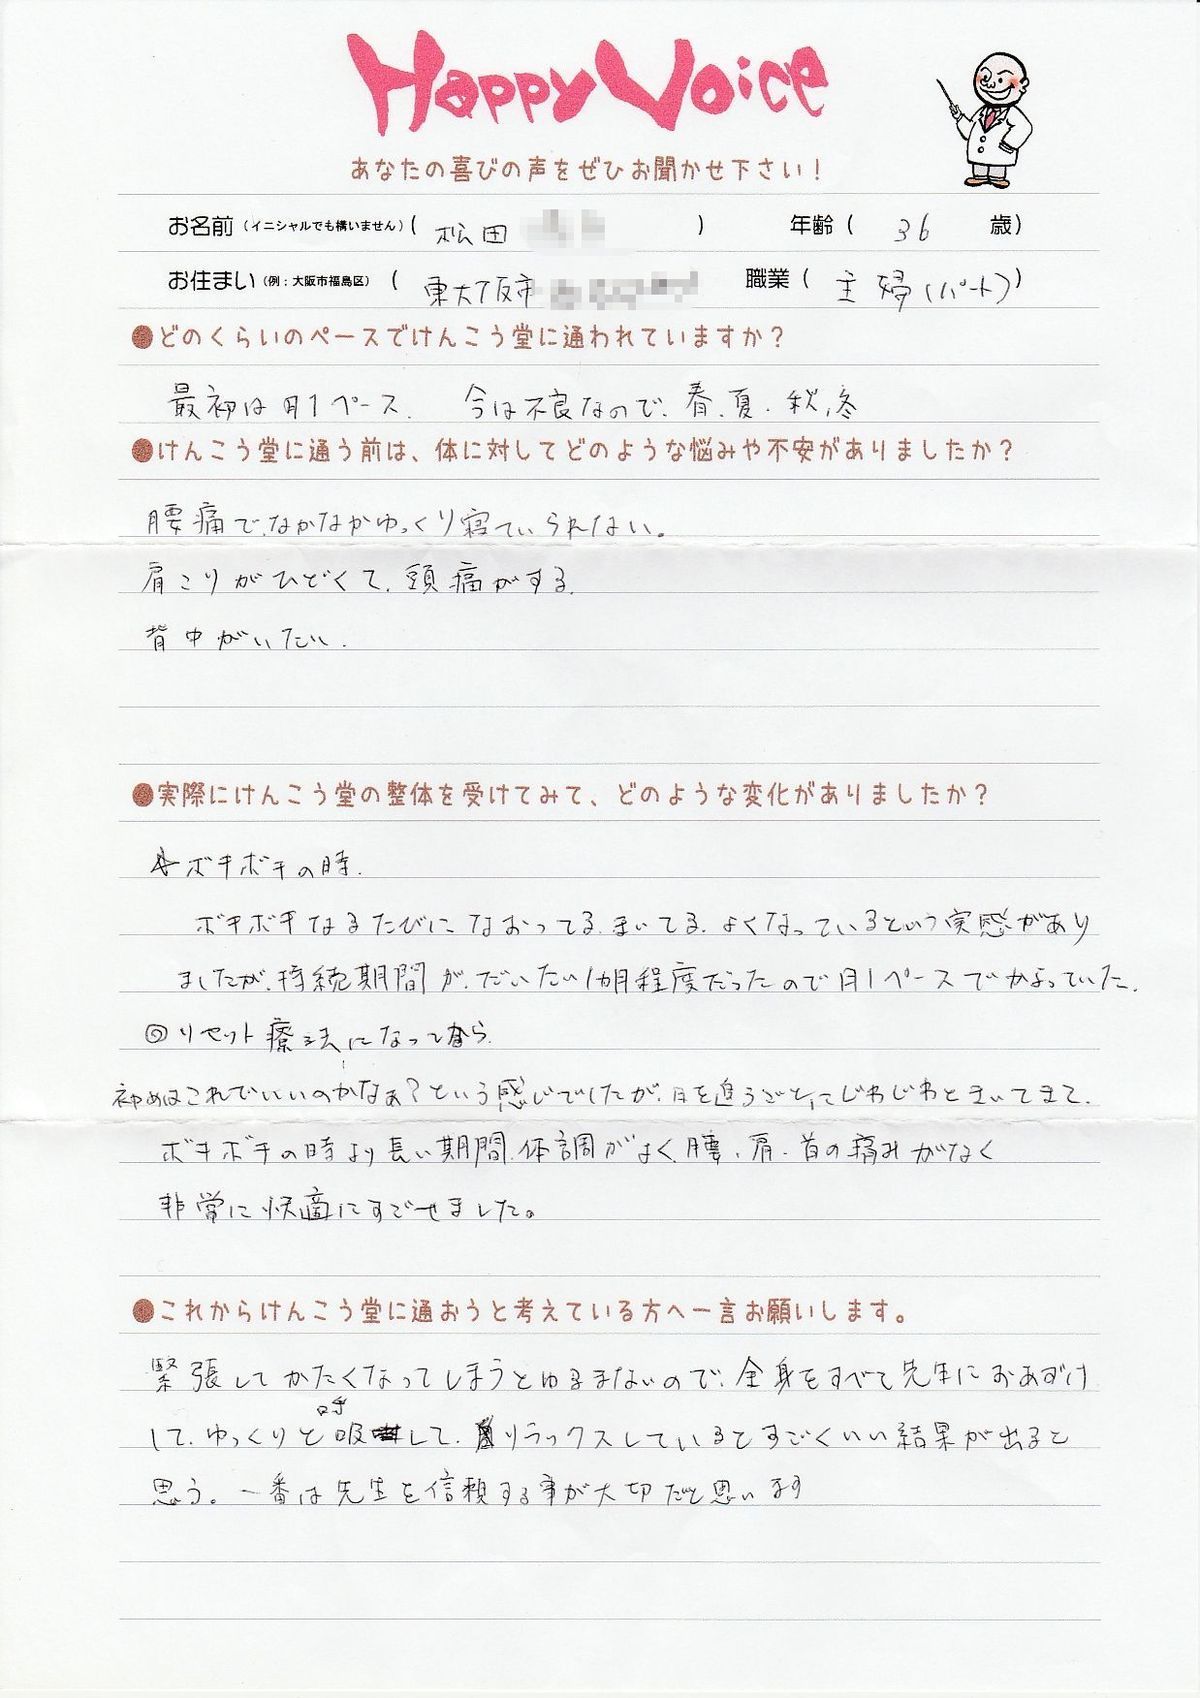 Happy Voice
あなたの喜びの声をぜひお聞かせ下さい！
お名前（イニシャルでも構いません）（ 松田 ） 年齢（ 36 歳）
お住まい（例：大阪市福島区）（ 東大阪市 ） 職業（ 主婦（パート））
●どのくらいのペースでけんこう堂に通われていますか？
最初は月1ペース. 今は不良なので、春、夏、秋、冬
●けんこう堂に通う前は、体に対してどのような悩みや不安がありましたか？
腰痛で、なかなかゆっくり寝ていられない。
肩こりがひどくて、頭痛がする.
背中がいたい.
●実際にけんこう堂の整体を受けてみて、どのような変化がありましたか？
ボキボキの時.
ボキボキなるたびになおってる、きいてる、よくなっているという実感があり
ましたが、持続期間が、だいたい1カ月程度だったので月1ペースでかよっていた.
◎リセット療法になってから
初めはこれでいいのかなぁ？という感じでしたが、日を追うごとにじわじわときいてきて、
ボキボキの時より長い期間、体調がよく、腰、肩、首の痛みがなく
非常に快適にすごせました。
●これからけんこう堂に通おうと考えている方へ一言お願いします。
緊張してかたくなってしまうとゆるまないので、全身をすべて先生におあずけ
して、ゆっくりと呼吸して、リラックスしているとすごくいい結果が出ると
思う。一番は先生を信頼する事が大切だと思います